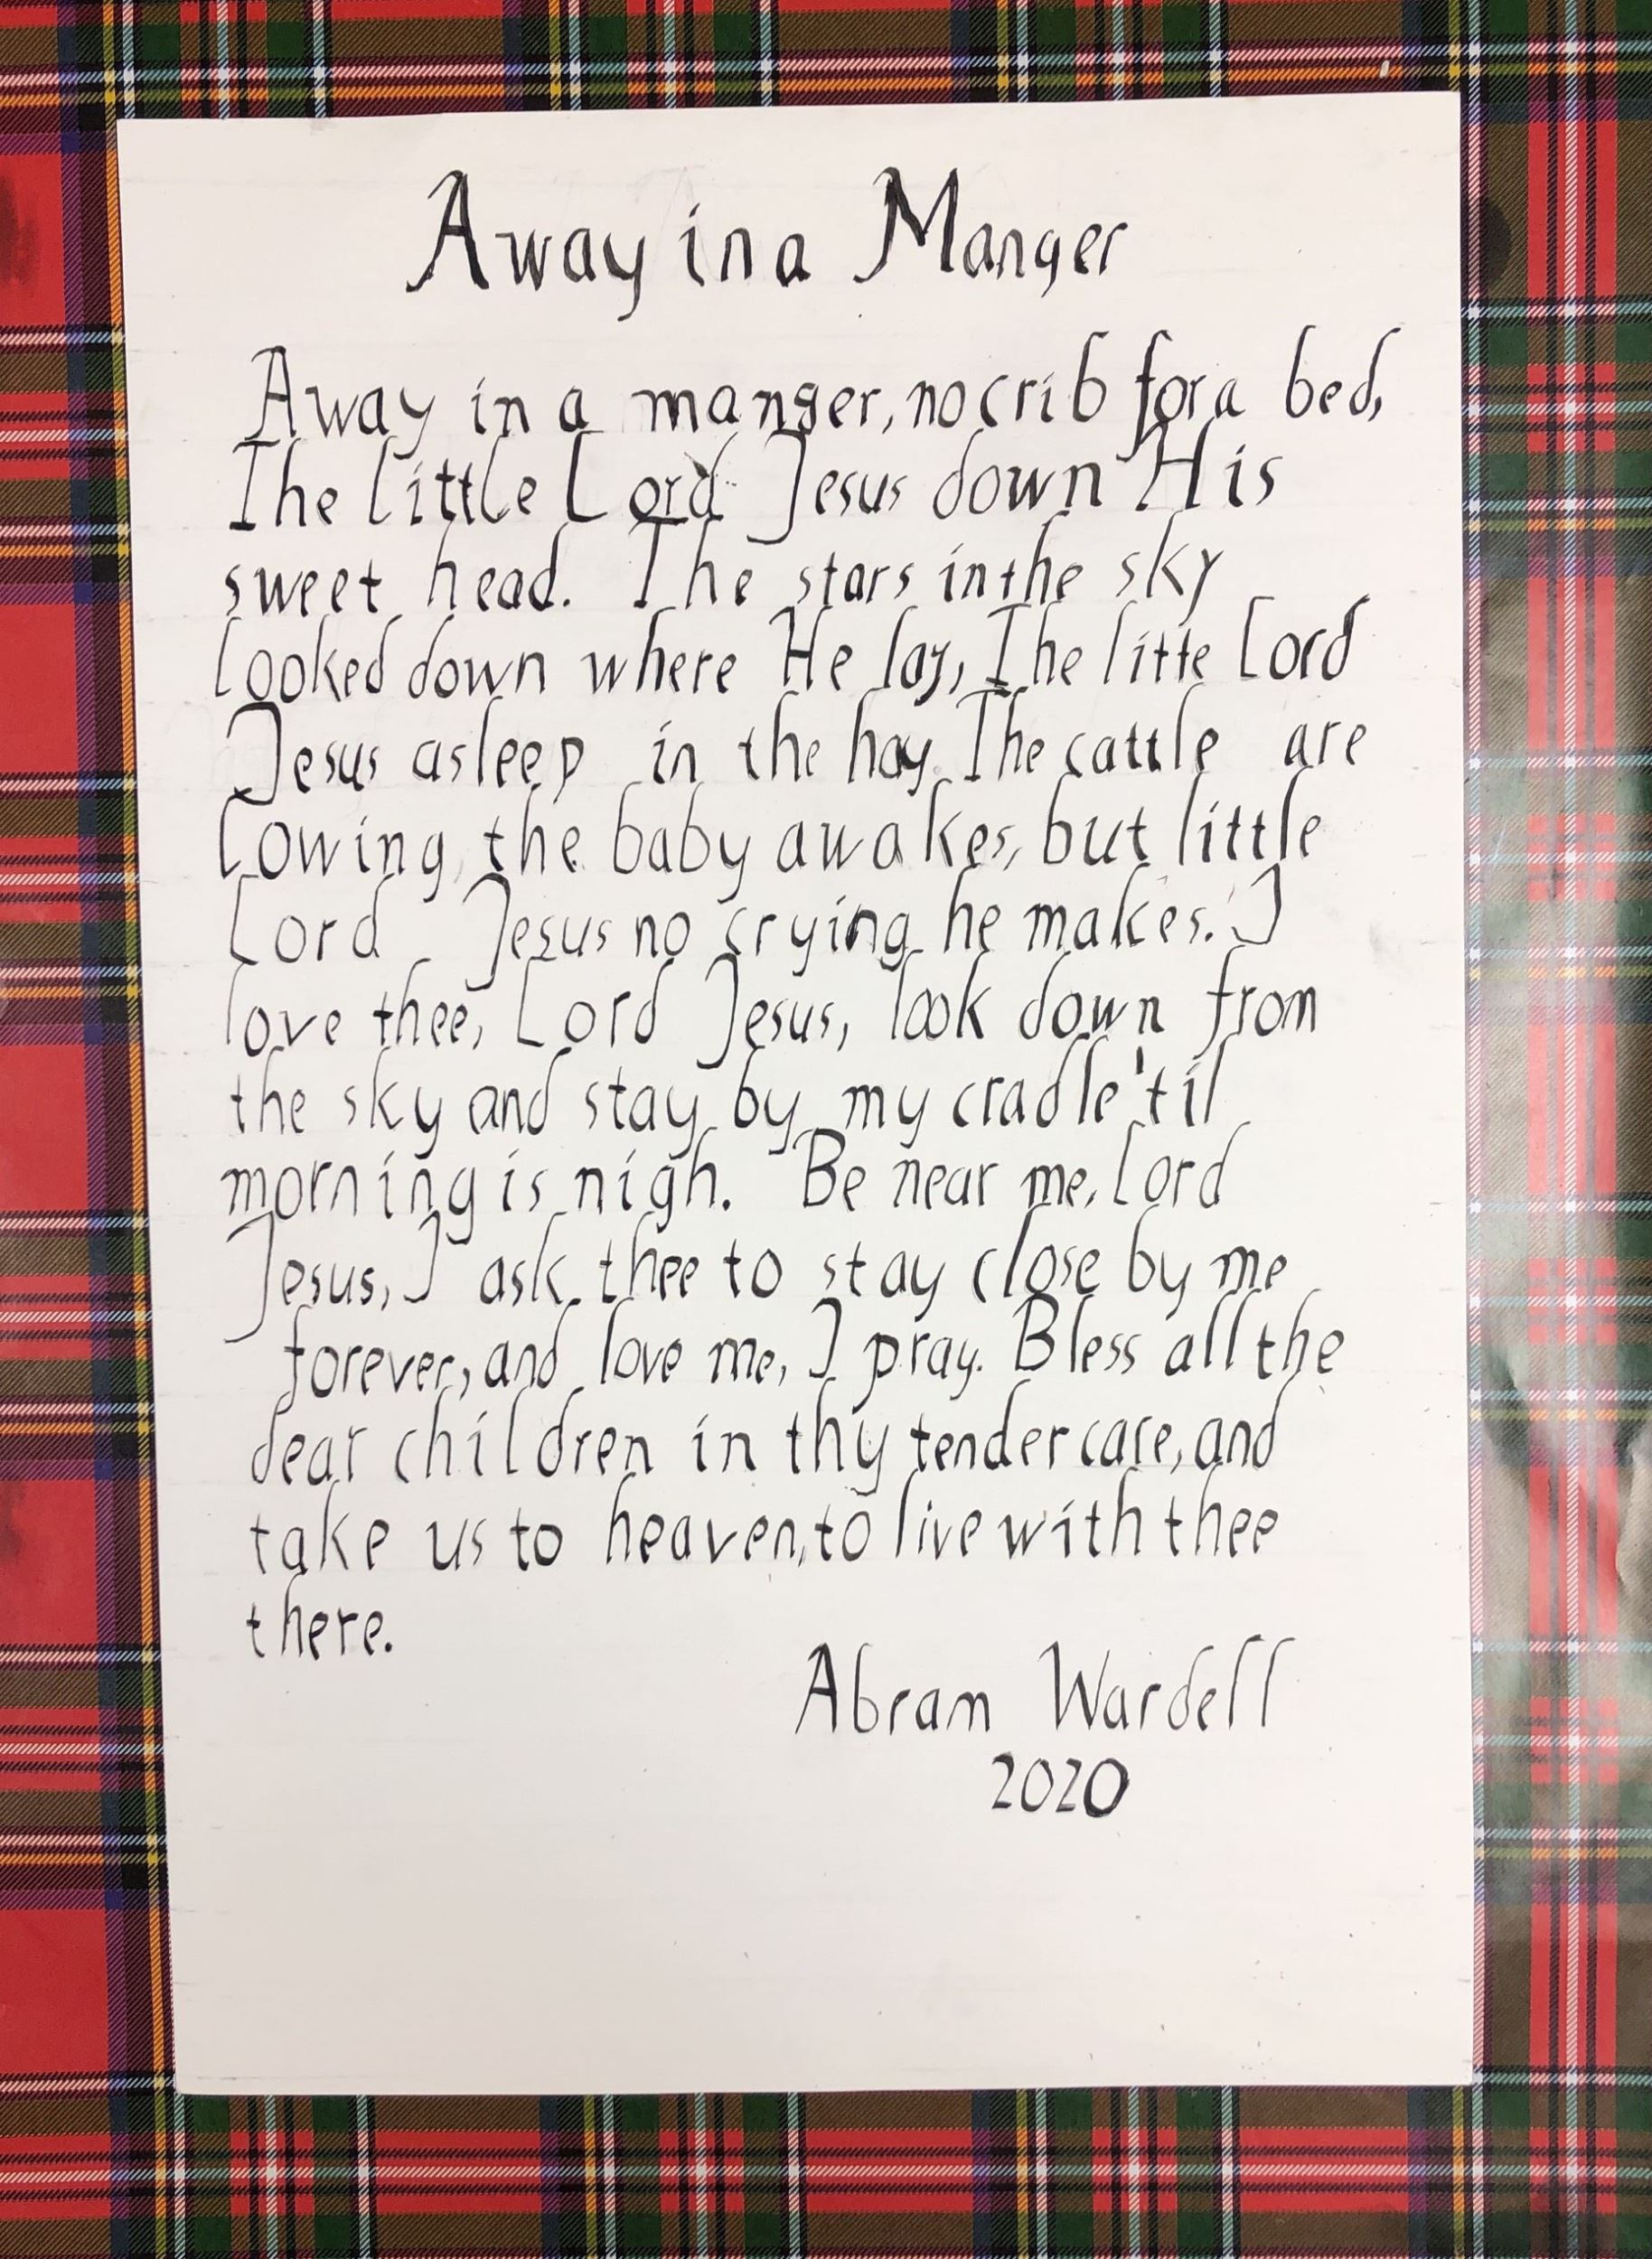 Away in a Manger
Away in a manger, no crib for a bed,
The little Lord Jesus down His
sweet head. The stars in the sky
looked down where He lay, The litte Lord
Jesus asleep in the hay. The cattle are
lowing, the baby awakes, but little
Lord Jesus no crying he makes. I
love thee, Lord Jesus, look down from
the sky and stay by my cradle 'til
morning is nigh. Be near me, Lord
Jesus, I ask thee to stay close by me
forever, and love me, I pray. Bless all the
dear children in thy tender care, and
take us to heaven, to live with thee
there.
Abram Wardell
2020